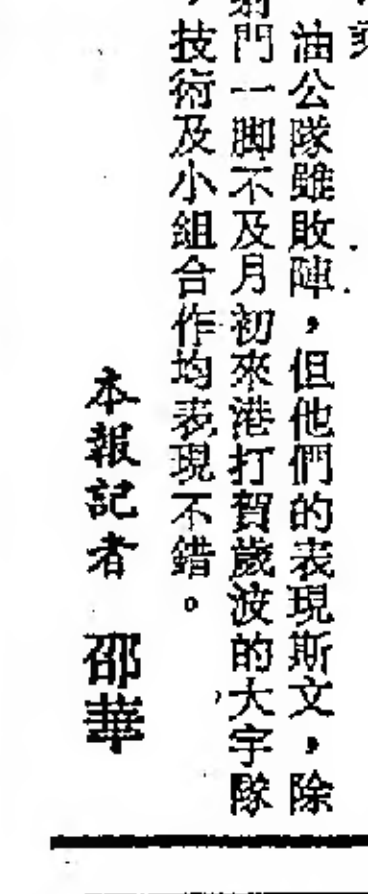 油公隊雖敗陣，但他們的表現斯文，除
射門一脚不及月初來港打賀歲波的大宇隊
，技術及小組合作均表現不錯。
本報記者 邵華